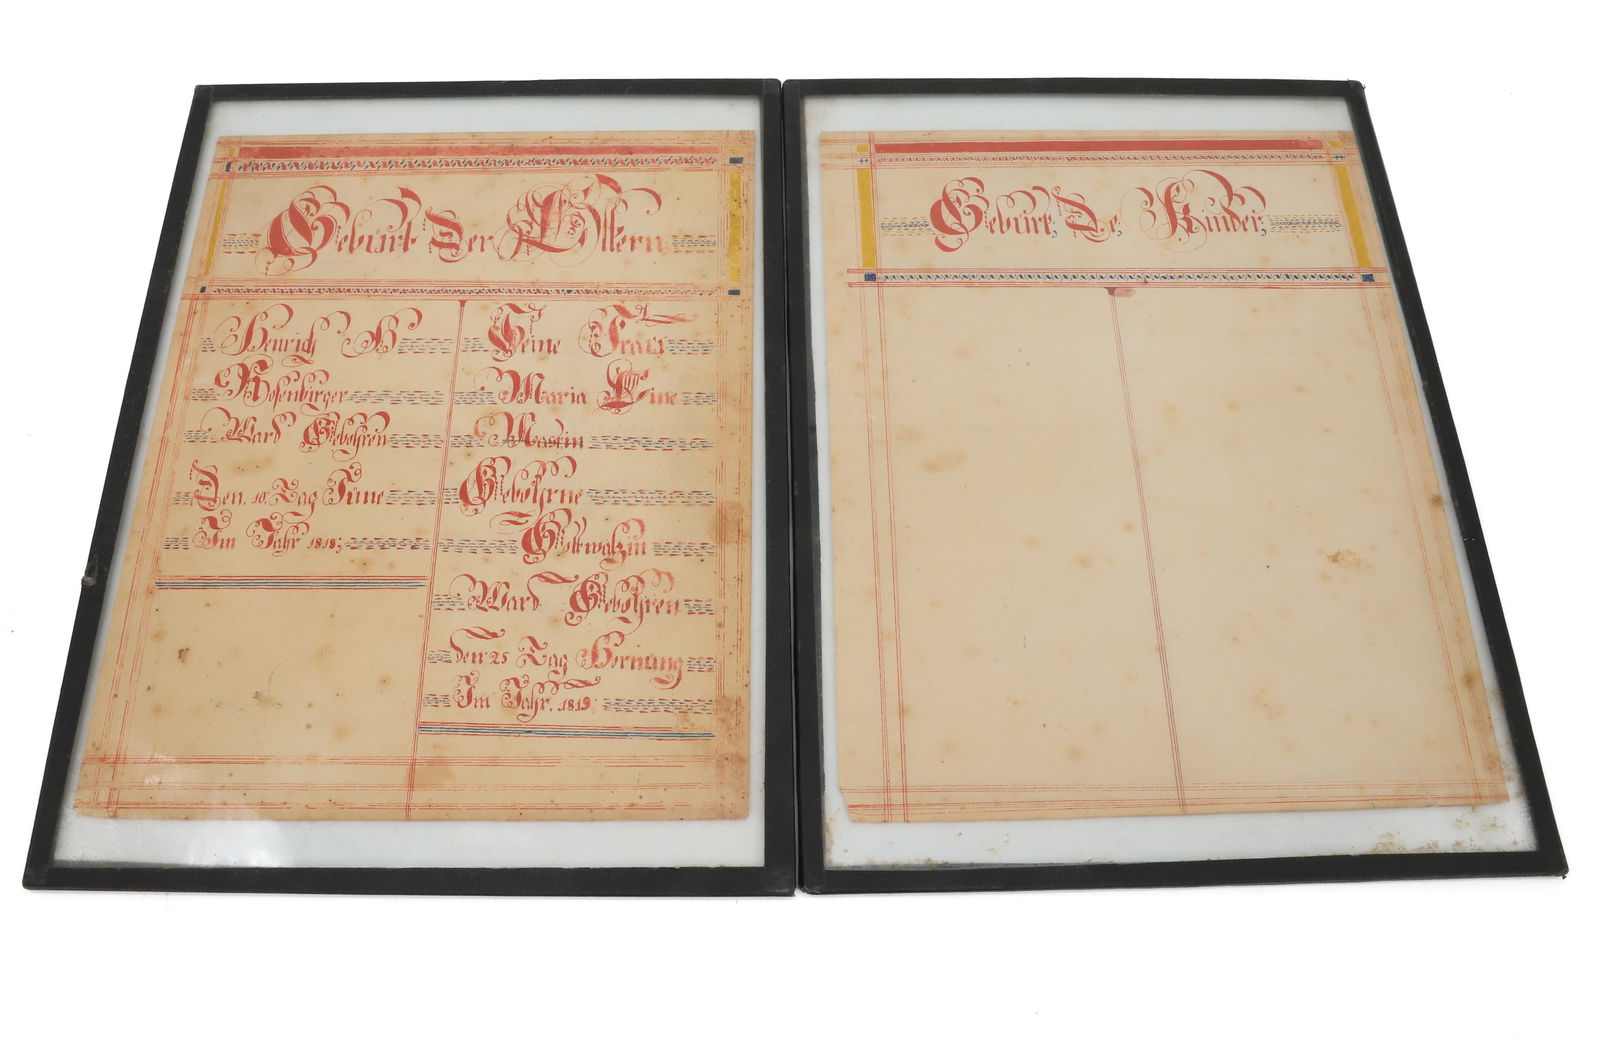 Geburt Der Eltern
Henrich B
Rosenbirger
Ward Gebohren
Den 10. Tag Jüne
Im Jahr 1818;
Seine Frau
Maria
Gebohrne
Gottwalzin
Ward Gebohren
Den 25 Tag Hornung
Im Jahr. 1819
Geburt, De, Kinder;